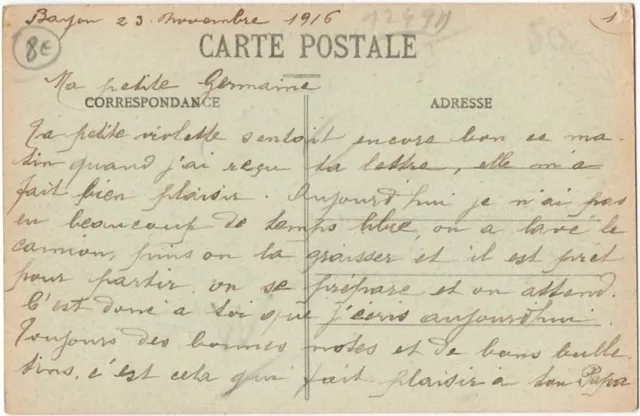 Bayon 23 Novembre 1916
17490
8€
50
1
CARTE POSTALE
Ma petite Germaine
CORRESPONDANCE
ADRESSE
Ta petite violette sentait encore bon ce ma-
tin quand j'ai reçu ta lettre, elle m'a
fait bien plaisir. Aujourd'hui je n'ai pas
eu beaucoup de temps libre, on a lavé le
camion, puis on la graisser et il est prêt
pour partir, on se prépare et on attend.
C'est donc a toi que j'écris aujourd'hui.
Toujours des bonnes notes et de bons bulle-
tins, c'est cela qui fait plaisir a ton Papa